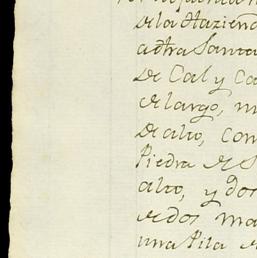 de la Hazien
a dha Santa
de Cal y Ca
de largo, m
de alto, con
Piedra de S
alto, y dos
de dos ma
una Pila d